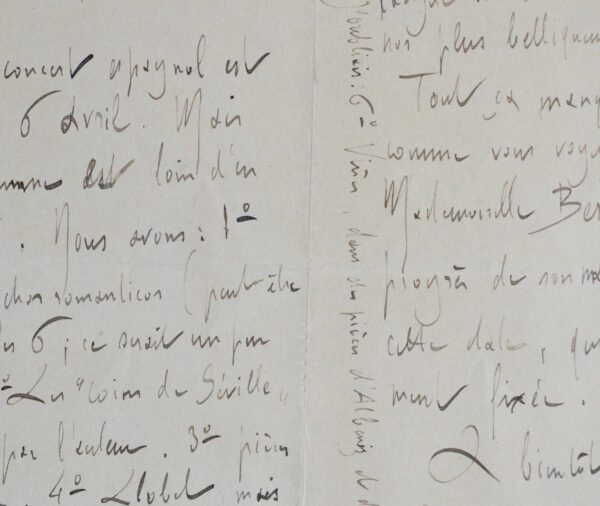 concert espagnol est
6 avril. Mais
est loin d'en
. Nous avons : 1º
romanticos (peut-être
les 6 ; ce serait un peu
Les "coins de Séville"
par l'auteur. 3º pièces
4º Llobet, mais
J'oubliais : 6º Viñes, dans des pièces d'Albeniz et d
nos plus belliqueu
Tout ça manq
comme vous voye
Mademoiselle Ber
progrès de son
cette date, qu
ment fixée.
A bientôt